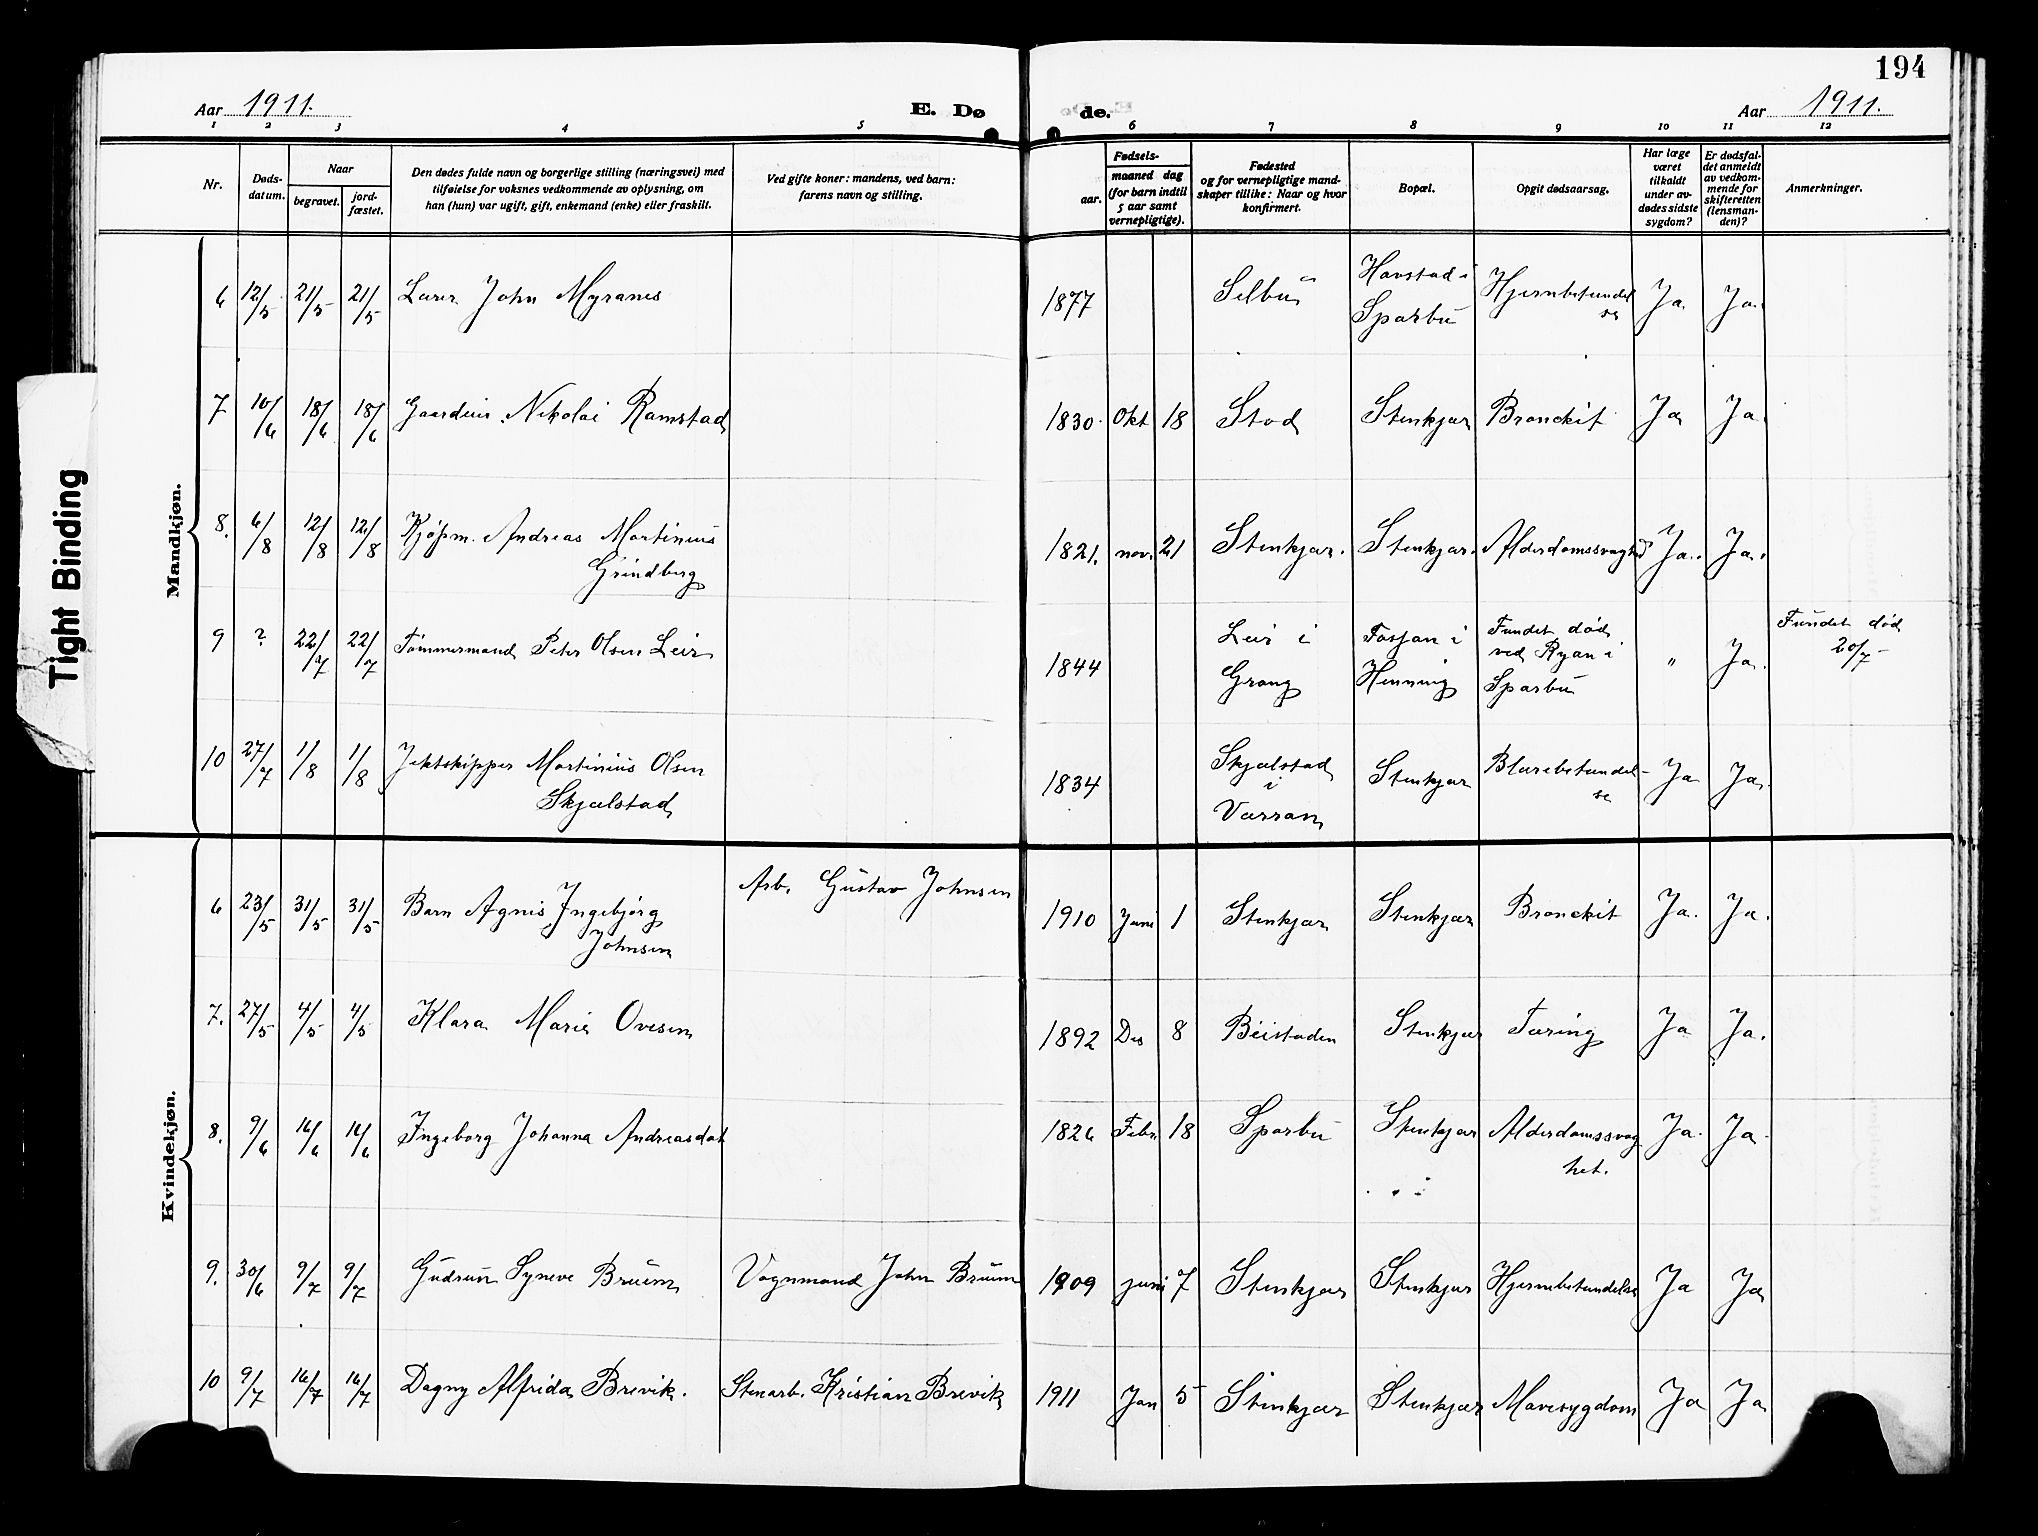 194
Aar 1911.
E. Dø
de.
Aar 1911.
1 2 3 4 5 6 7 8 9 10 11 12
Nr.
Døds-
datum.
Naar
begravet.
jord-
fæstet.
Den dødes fulde navn og borgerlige stilling (næringsvei) med
tilføielse for voksnes vedkommende av oplysning, om
han (hun) var ugift, gift, enkemand (enke) eller fraskilt.
Ved gifte koner: mandens, ved barn:
farens navn og stilling.
Fødsels-
aar.
maaned dag
(for barn indtil
5 aar samt
vernepligtige).
Fødested
og for vernepligtige mand-
skaper tillike: Naar og hvor
konfirmert.
Bopæl.
Opgit dødsaarsag.
Har læge
været
tilkaldt
under av-
dødes sidste
sygdom?
Er dødsfal-
det anmeldt
av vedkom-
mende for
skifteretten
(lensman-
den)?
Anmerkninger.
Tight Binding
Mandkjøn.
6 12/5 21/5 21/5 Lærer John Myranes 1877 Selbu Havstad i
Sparbu Hjernebetændel
se Ja. Ja.
7 10/6 18/6 18/6 Gaardeier Nikolai Ramstad 1830 Okt 18 Stod Stenkjær Bronckit Ja Ja.
8. 6/8 12/8 12/8 Kjøpm. Andreas Martinius
Grindberg 1821. nov. 21 Stenkjær. Stenkjær. Alderdomssvaghed Ja. Ja.
9 ? 22/7 22/7 Tømmermand Peter Olsen Leir 1844 Leir i
Grong Fosjan i
Henning Fundet død
ved Ryan i
Sparbu " Ja. Fundet død
20/7
10 27/7 1/8 1/8 Jektskipper Martinius Olsen
Skjælstad 1834 Skjælstad
i
Værran Stenkjær Blærebetændel-
se Ja Ja.
Kvindekjøn.
6 23/5 31/5 31/5 Barn Agnes Ingebjørg
Johnsen Arb. Gustav Johnsen 1910 Juni 1 Stenkjær Stenkjær Bronckit Ja. Ja.
7. 27/5 4/5 4/5 Klara Marie Ovesen 1892 Des 8 Beistaden Stenkjær Tæring Ja Ja.
8. 9/6 16/6 16/6 Ingeborg Johanna Andreasdat 1826 Febr 18 Sparbu Stenkjær Alderdomssvag
het. Ja. Ja.
9. 30/6 9/7 9/7 Gudrun Syneve Bruem Vognmand John Bruem 1909 juni 7 Stenkjær Stenkjær Hjernebetændelse Ja Ja
10 9/7 16/7 16/7 Dagny Alfrida Brevik. Stenarb. Kristian Brevik 1911 Jan 5 Stenkjær Stenkjær Mavesygdom Ja Ja